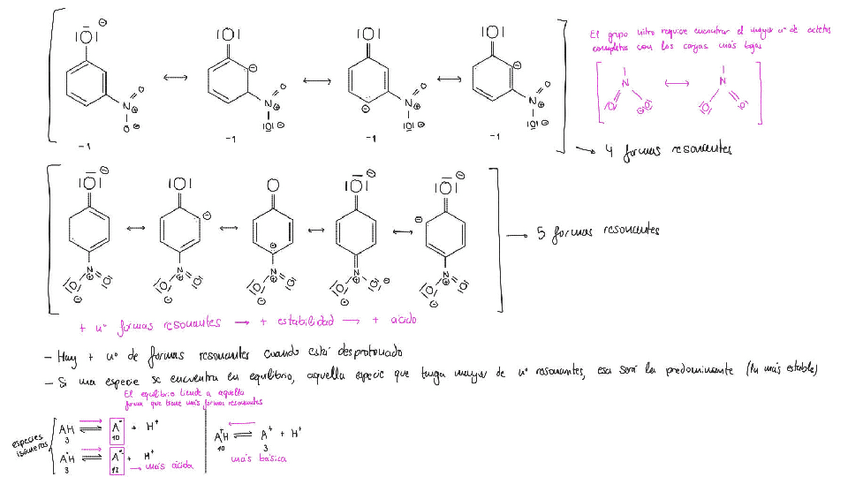 El grupo nitro requiere encontrar el mayor nº de octetos
completos con las cargas más bajas
-1
-1
-1
-1
4 formas resonantes
5 formas resonantes
+ nº formas resonantes → + estabilidad → + ácido
- Hay + nº de formas resonantes cuando está desprotonado
- Si una especie se encuentra en equilibrio, aquella especie que tenga mayor de nº resonantes, esa será la predominante (la más estable)
El equilibrio tiende a aquella
forma que tiene más formas resonantes
especies
isómeras
AH ⇌ A⁻ + H⁺
3 10
AH ⇌ A⁻ + H⁺
3 12 → más ácida
AH ⇌ A + H⁺
10 3
más básica